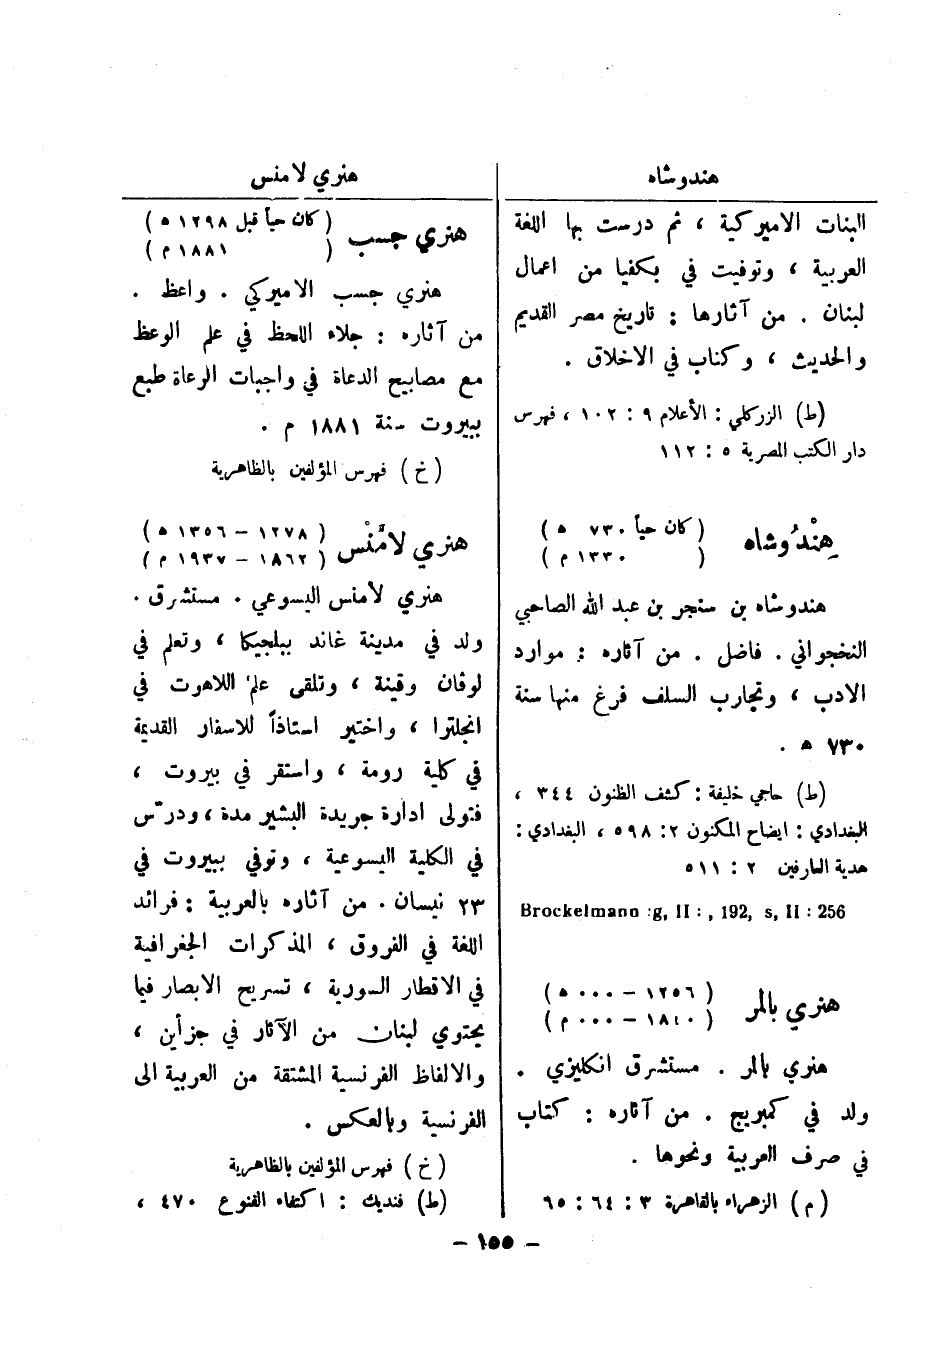 هندوشاه
البنات الاميركية ، ثم درست بها اللغة
العربية ، وتوفيت في بكفيا من اعمال
لبنان . من آثارها : تاريخ مصر القديم
والحديث ، وكتاب في الاخلاق .
(ط) الزركلي : الأعلام ٩ : ١٠٢ ، فهرس
دار الكتب المصرية ٥ : ١١٢
هِنْدُوشاه ( كان حياً ٧٣٠ ه )
( ١٣٣٠ م )
هندوشاه بن سنجر بن عبد الله الصاحبي
النخجواني . فاضل . من آثاره : موارد
الادب ، وتجارب السلف فرغ منها سنة
٧٣٠ ه .
(ط) حاجي خليفة : كشف الظنون ٣٤٤ ،
البغدادي : ايضاح المكنون ٢ : ٥٩٨ ، البغدادي :
هدية العارفين ٢ : ٥١١
Brockelmann :g, II : , 192, s, II : 256
هنري بالمر ( ١٢٥٦ - ٠٠٠ ه )
( ١٨٤٠ - ٠٠٠ م )
هنري بالمر . مستشرق انكليزي .
ولد في كمبريج . من آثاره : كتاب
في صرف العربية ونحوها .
(م) الزهراء بالقاهرة ٣ : ٦٤ : ٦٥
هنري لامنس
هنري جسب ( كان حياً قبل ١٢٩٨ ه )
( ١٨٨١ م )
هنري جسب الاميركي . واعظ .
من آثاره : جلاء اللحظ في علم الوعظ
مع مصابيح الدعاة في واجبات الرعاة طبع
ببيروت سنة ١٨٨١ م .
(خ) فهرس المؤلفين بالظاهرية
هنري لامَّنْس ( ١٢٧٨ - ١٣٥٦ ه )
( ١٨٦٢ - ١٩٣٧ م )
هنري لامنس اليسوعي . مستشرق .
ولد في مدينة غاند ببلجيكا ، وتعلم في
لوفان وفينة ، وتلقى علم اللاهوت في
انجلترا ، واختير استاذاً للاسفار القديمة
في كلية رومة ، واستقر في بيروت ،
فتولى ادارة جريدة البشير مدة ، ودرّس
في الكلية اليسوعية ، وتوفي ببيروت في
٢٣ نيسان . من آثاره بالعربية : فرائد
اللغة في الفروق ، المذكرات الجغرافية
في الاقطار السورية ، تسريح الابصار فيما
يحتوي لبنان من الآثار في جزأين ،
والالفاظ الفرنسية المشتقة من العربية الى
الفرنسية وبالعكس .
(خ) فهرس المؤلفين بالظاهرية
(ط) فنديك : اكتفاء القنوع ٤٧٠ ،
- ١٥٥ -